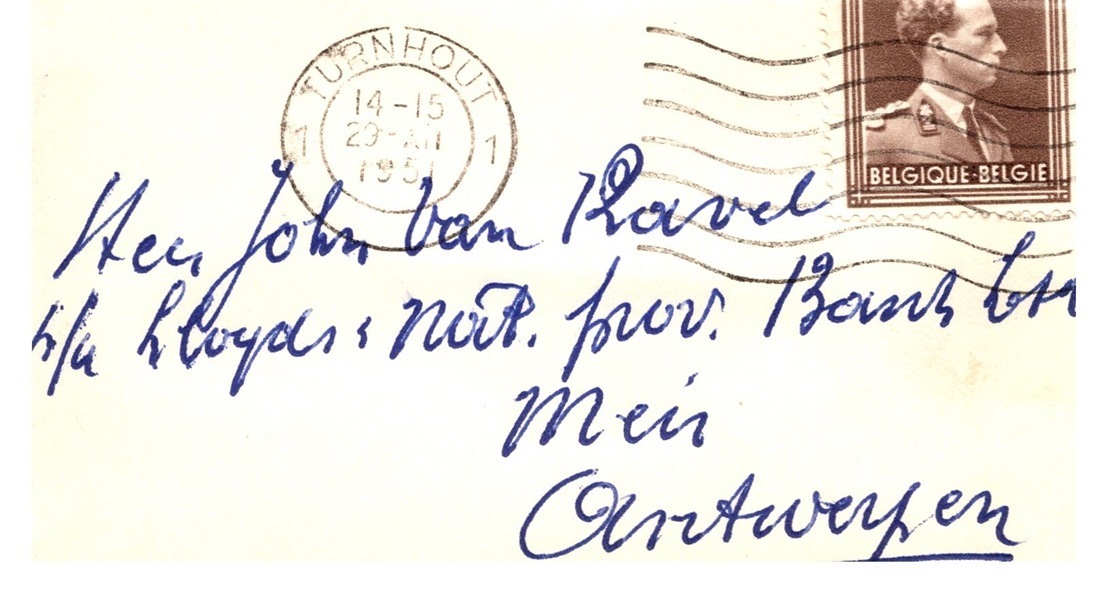 TURNHOUT
14-15
29-XII
1951
1 1
BELGIQUE·BELGIE
Heer John Van Ravel
p/a Lloyds & Nat. prov. Bank Ltd
Meir
Antwerpen